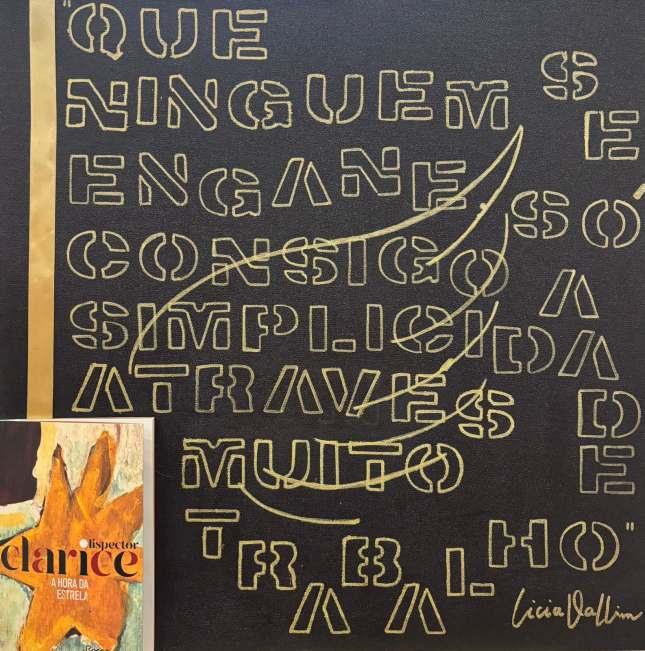 "QUE
NINGUEM SE
ENGANE SÓ
CONSIGO A
SIMPLICIDADE
ATRAVES DE
MUITO
TRABALHO"
Licia Dallim
lispector
clarice
A HORA DA
ESTRELA